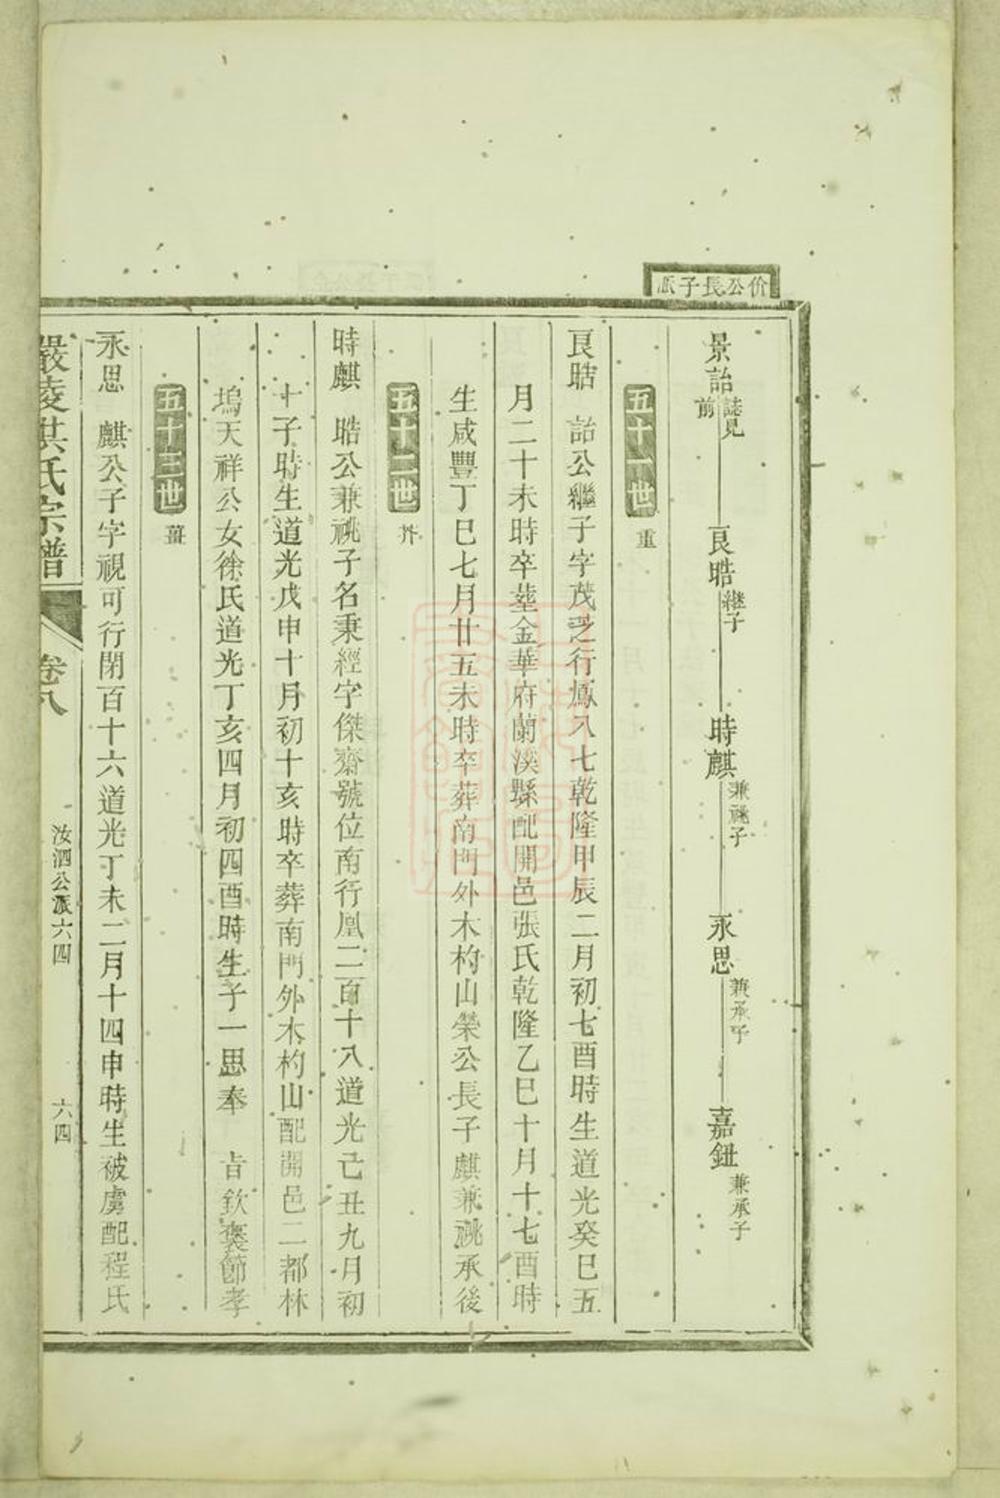 价公長子派
景詒 誌見前 良晧 継子 時麒 兼祧子 永思 兼承子 嘉鈕 兼承子
五十一世 重
良晧 詒公繼子字茂之行鳳八七乾隆甲辰二月初七酉時生道光癸巳五
月二十未時卒塟金華府蘭溪縣配開邑張氏乾隆乙巳十月十七酉時
生咸豐丁巳七月廿五未時卒葬南門外木杓山榮公長子麒兼祧承後
五十二世 芥
時麒 晧公兼祧子名秉經字傑齋號位南行凰二百十八道光己丑九月初
十子時生道光戊申十月初十亥時卒葬南門外木杓山配開邑二都林
塢天祥公女徐氏道光丁亥四月初四酉時生子一思奉 旨欽褒節孝
五十三世 薑
永思 麒公子字視可行閉百十六道光丁未二月十四申時生被虜配程氏
嚴陵洪氏宗譜 卷八 汝泗公派六四 六四